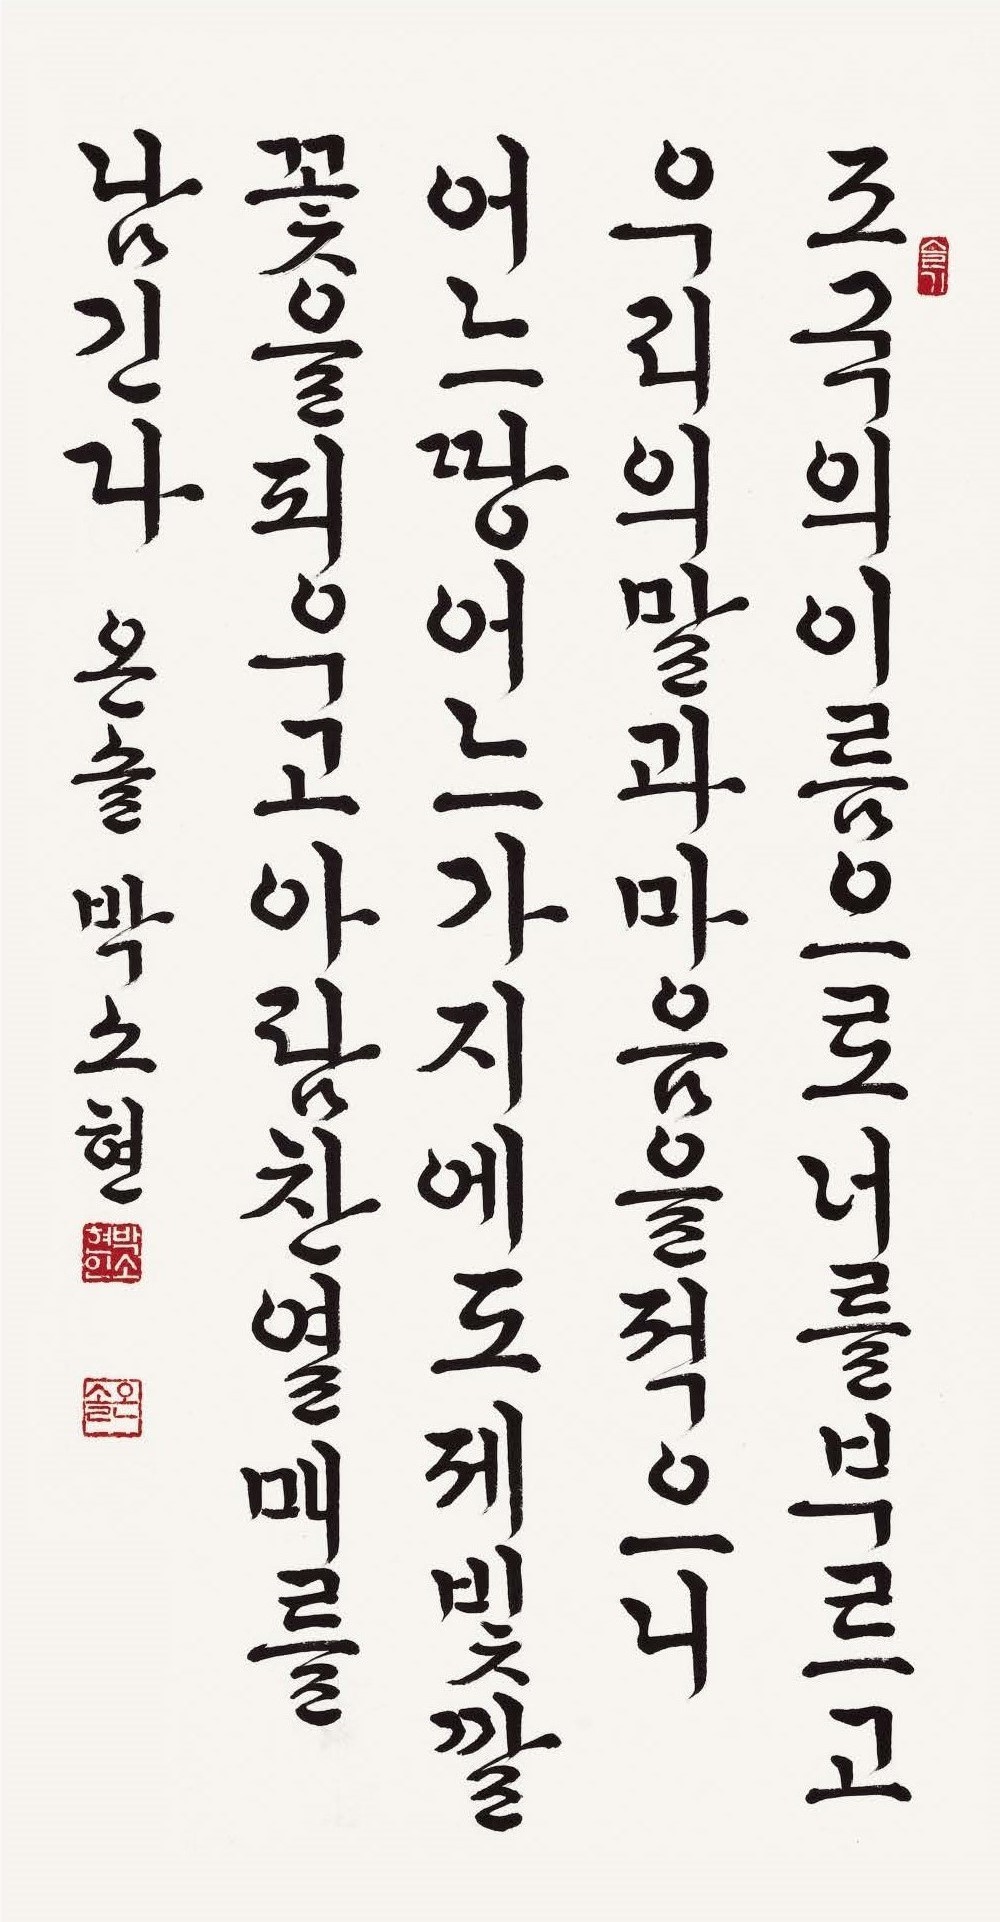 조국의이름으로너를부르고
우리의말과마음을적으니
어느땅어느가지에도제빛깔
꽃을피우고아람찬열매를
남긴다 온솔 박소현
박소현인
온솔